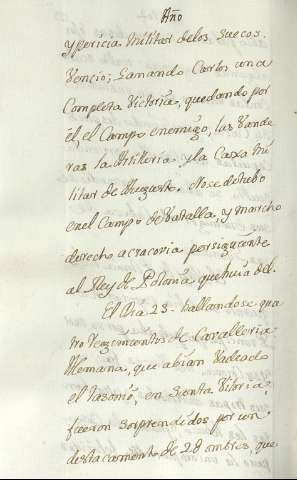 Año
y pericia Militar delos Suecos.
Vencio; Ganando Carlos una
Completa Victoria, quedando por
él, el Campo enemigo, las Vande
ras la Artilleria y la Caxa Mi
litar de Augusto. No se detubo
enel Campo de Vatalla, y marcho
derecho a cracovia persiguiente
al Rey de Polonia que huia del.
El Dia 23. hallandose qua
tro Regimientos de Cavalleria
Alemana, que abian Vadeado
el en Santa Vitoria,
fueron sorprendidos por un
destacamento de 28 ombres, que